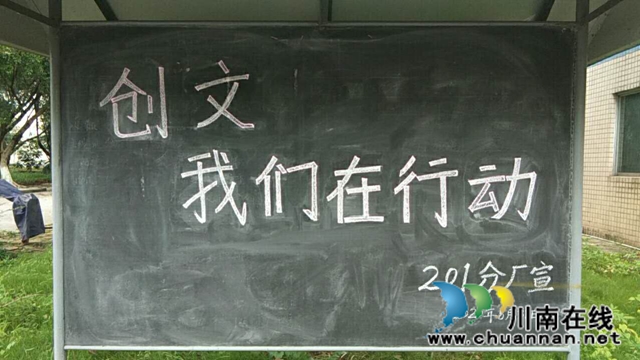 创文
我们在行动
201分厂宣
川南在线
www.chuannan.net